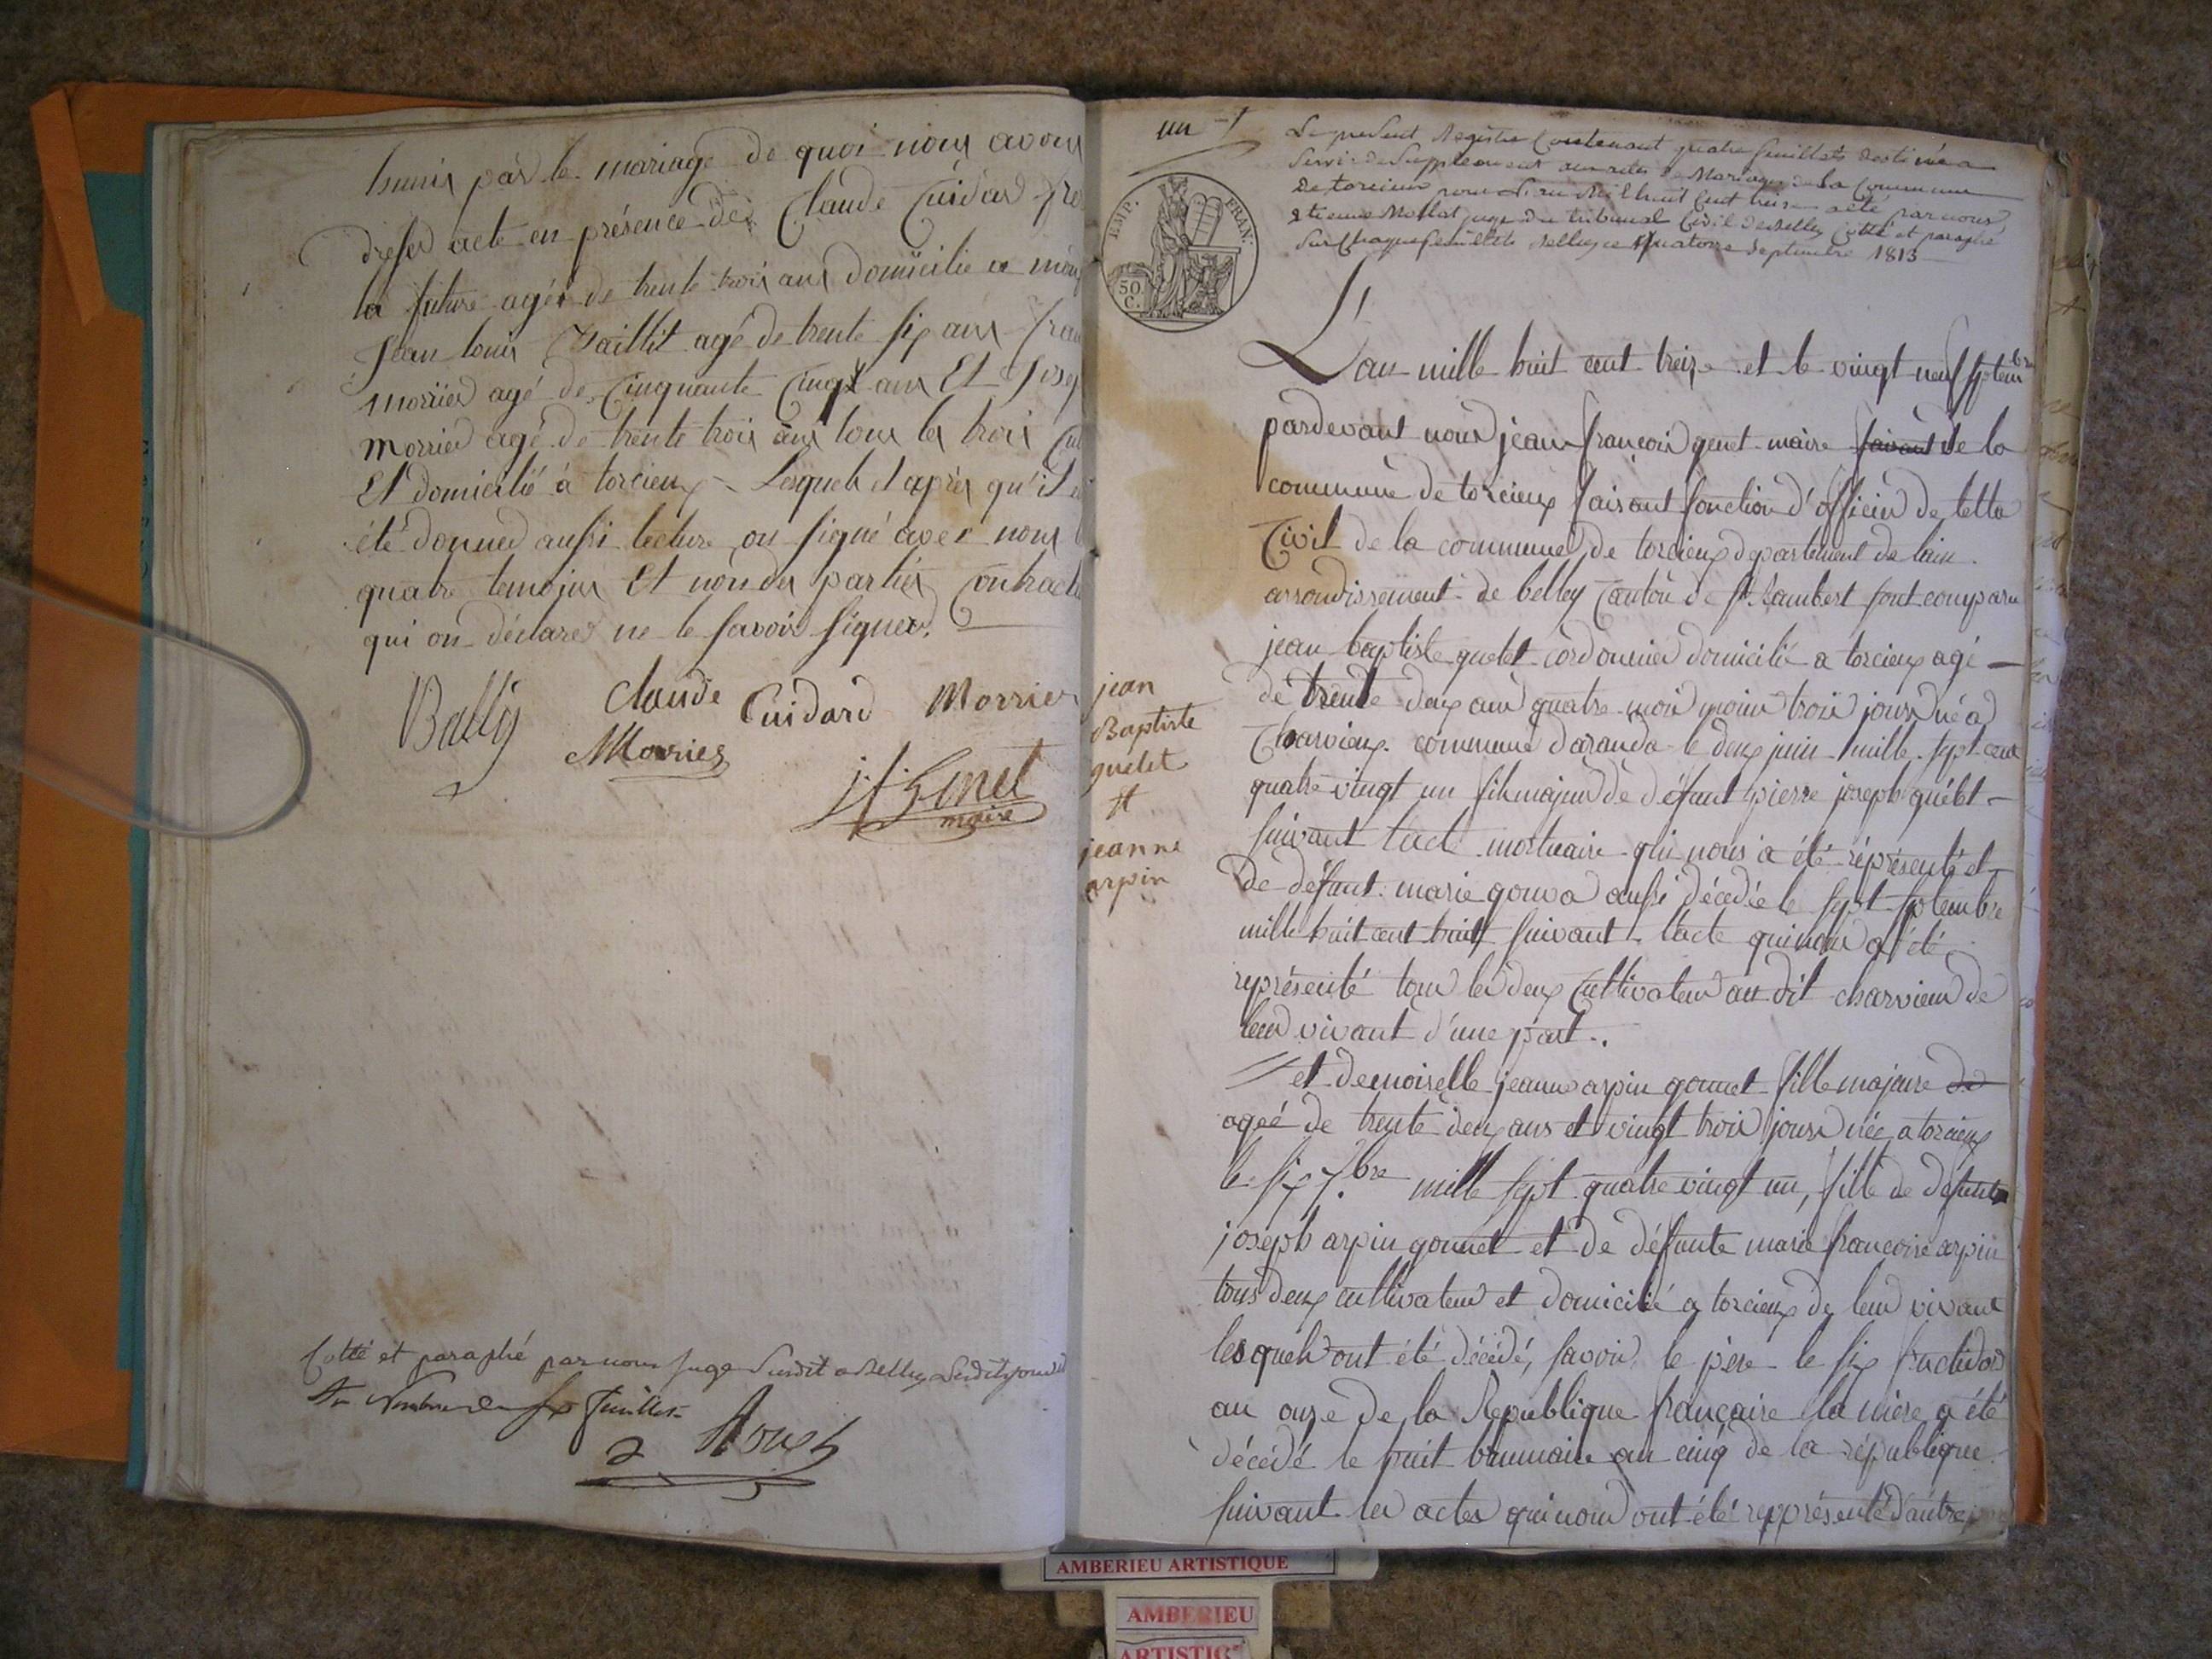 hunis par le mariage de quoi nous avons
dresser acte en présence de Claude Cuidard
la future agée de trente trois ans domicilié a
jean louis agé de trente six ans
morrier agé de Cinquante Cinq ans Et
morrier agé de trente trois ans tous les trois
Et domicilié à torcieux Lesquels et après qu'il
été donner aussi lecture on signé avec nous
quatre temoins Et non des parties
qui on déclarer ne le savoir signer.
Bally Claude Cuidard Morrier
Morrier
j f Genet
maire
Cotté et paraphé par nous juge susdit a Belley
feuillets
un 1
Le present Registre Contenant quatre feuillets destinés a
servir de Supplement aux actes de Mariages de la Commune
de torcieux pour L'an Mil huit Cent treize a été par nous
etienne Mollat juge du tribunal Civil de Belley Cotté et paraphé
sur Chaque feuillets Belley ce Quatorze Septembre 1813
EMP. FRAN.
50
C.
L'an mille huit cent treize et le vingt neuf septembre
pardevant nous jean françois genet maire faisant de la
commune de torcieux faisant fonction d'officier de letta
Civil de la commune de torcieux departement de lain
arrondissement de belley Canton de st Rambert sont comparu
jean baptiste quelet cordonnier domicilié a torcieux agé
de trente deux ans quatre mois moins trois jours né a
Charvieux commune daranda le deux juin mille sept cent
quatre vingt un fils majeur de défunt pierre joseph
suivant lacte mortuaire qui nous a été réprésenté et
de défunt marie aussi décédée le sept septembre
mille huit cent suivant lacte qui nous a été
représenté tous les deux Cultivateur au dit charvieux de
leur vivant d'une part.
jean
Baptiste
quelet
et
jeanne
arpin
et demoiselle jeanne arpin gonnet fille majeure de
ageé de trente deux ans et vingt trois jours née a torcieux
le six 7.bre mille sept quatre vingt un, fille de défunts
joseph arpin gonnet et de défunte marie francoise arpin
tous deux cultivateur et domicilié a torcieux de leur vivant
lesquels ont été décédé, savoir, le père le six fructidor
an onze de la Republique française la mère a été
décédé le huit brumaire an cinq de la république
suivant les actes qui nous ont été représenté d'autre
AMBERIEU ARTISTIQUE
AMBERIEU